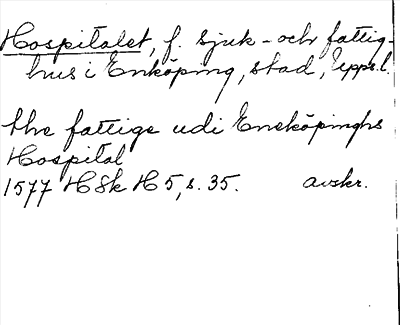 Hospitalet, f. sjuk- och fattig-
hus i Enköping, stad, Upps.l.
the fattige udi Eneköpinghs
Hospital
1577 HSk H5, s. 35. avskr.